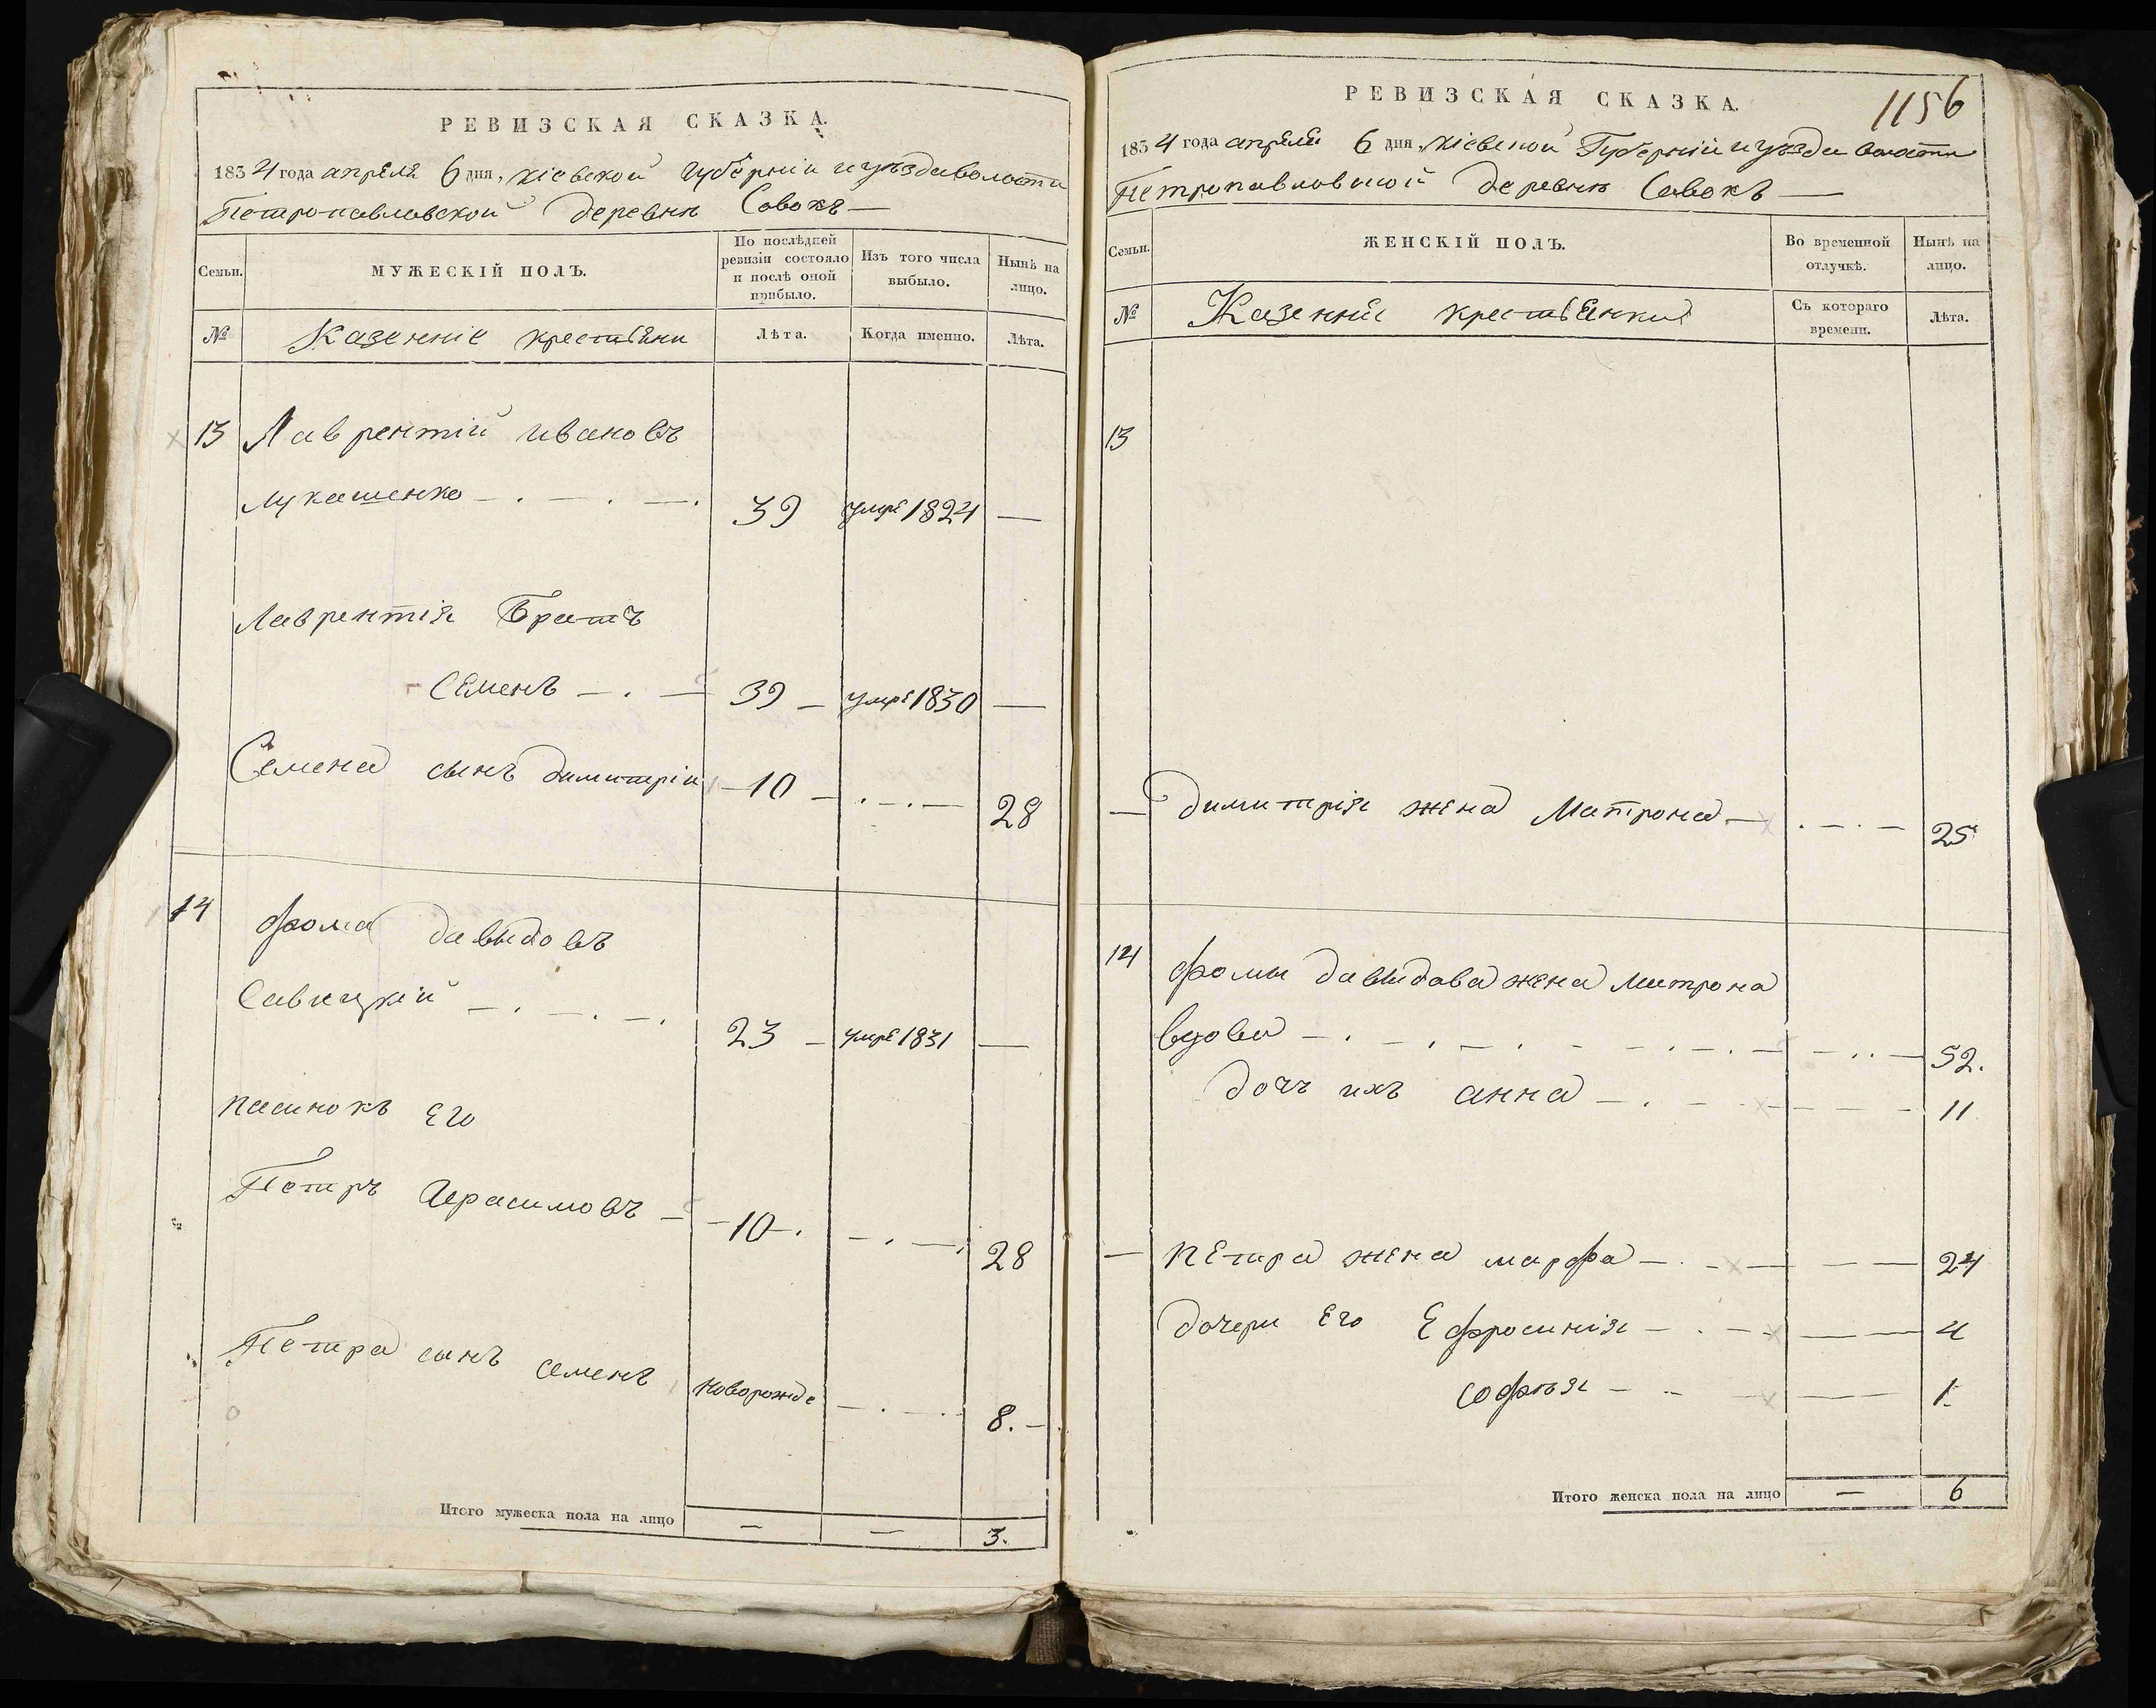 РЕВИЗСКАЯ СКАЗКА.
1834 года апреля 6 дня, кіевской губерніи и уѣзда волости
Петропавловской деревни Совокъ —
Семьи.
МУЖЕСКІЙ ПОЛЪ.
По послѣдней
ревизіи состояло
и послѣ оной
прибыло.
Изъ того числа
выбыло.
Нынѣ на
лицо.
№
Казенніе крестьяни
Лѣта.
Когда именно.
Лѣта.
13 Лаврентій ивановъ
лукашенко — . — . — . 39 умре 1824 —
Лаврентія Братъ
Семенъ — . — 39 — умре 1830 —
Семена сынъ димитрій — 10 — . — . — 28
14 фома давыдовъ
Савицкій — . — . — . 23 — умре 1831 —
пасинокъ его
Петръ Герасимовъ — — 10 — . — . — . 28
Петра сынъ семенъ новорожде — . — . 8. —
Итого мужеска пола на лицо — — 3.
1156
РЕВИЗСКАЯ СКАЗКА.
1834 года апреля 6 дня, кіевской Губерніи и уѣзда волости
Петропавловской деревни Совокъ —
Семьи.
ЖЕНСКІЙ ПОЛЪ.
Во временной
отлучкѣ.
Нынѣ на
лицо.
№
Казенніе крестьянки
Съ котораго
времени.
Лѣта.
13
— димитрія жена Матрона — . — . — 25
14 фомы давыдова жена матрона
вдова — . — . — . — — . — . — — . . — 52.
дочь ихъ анна — . — — — — 11
— петра жена марфа — . — — — — 24
дочери его Ефросинія — . — — — 4
софія — — — — — 1
Итого женска пола на лицо — 6